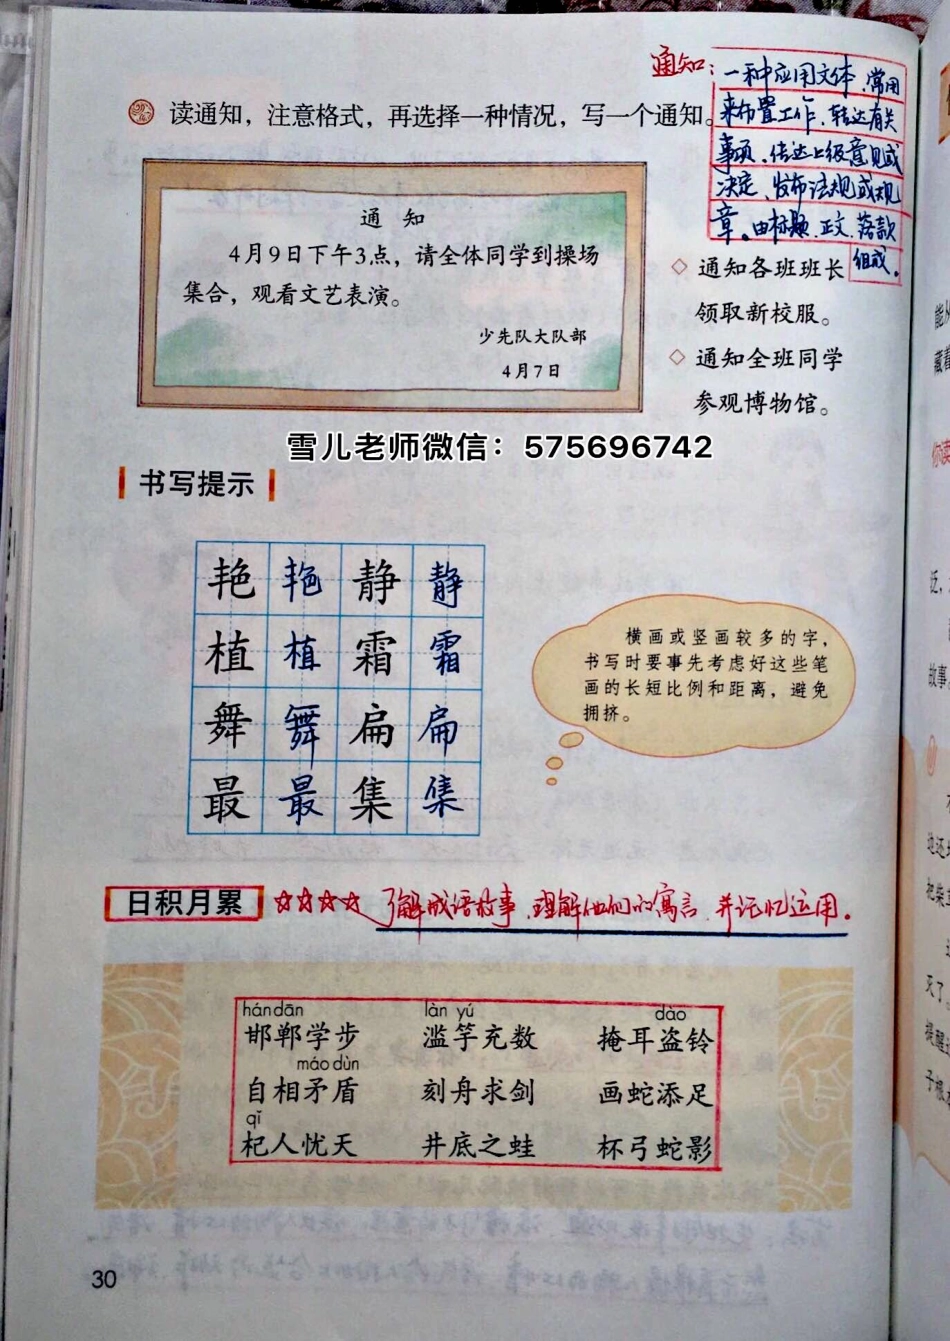 通知：一种应用文体.常用
来布置工作、转达有关
事项、传达上级意见或
决定、发布法规或规
章。由标题.正文.落款
组成。
读通知，注意格式，再选择一种情况，写一个通知。
通 知
4月9日下午3点，请全体同学到操场
集合，观看文艺表演。
少先队大队部
4月7日
◇ 通知各班班长
领取新校服。
◇ 通知全班同学
参观博物馆。
雪儿老师微信：575696742
书写提示
艳 艳 静 静
植 植 霜 霜
舞 舞 扁 扁
最 最 集 集
横画或竖画较多的字，
书写时要事先考虑好这些笔
画的长短比例和距离，避免
拥挤。
日积月累 ☆☆☆☆ 了解成语故事、理解他们的寓言、并记忆运用。
hán dān làn yú dào
邯郸学步 滥竽充数 掩耳盗铃
máo dùn
自相矛盾 刻舟求剑 画蛇添足
qǐ
杞人忧天 井底之蛙 杯弓蛇影
30
能从
藏着
你读
泛，
故事
地还
把柴
灭了
提醒
子根